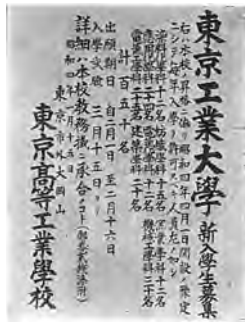 東京工業大學新入學生募集
右ハ本校ノ昇格ニ依リ昭和四年四月一日開設ノ豫定
ニシテ毎年入學ヲ許可スベキ人員左ノ如シ
染料化學科十二名 紡織學科十五名 窯業學科十二名
應用化學科四十名 電氣化學科十二名 機械工學科三十名
電氣工學科二十名 建築學科二十名
計百五十名
出願期日 自二月一日 至二月十六日
入學試驗 三月十五日ヨリ
詳細ハ本校教務掛ニ承合ノコト
昭和四年一月十五日
東京市外大岡山
東京高等工業學校